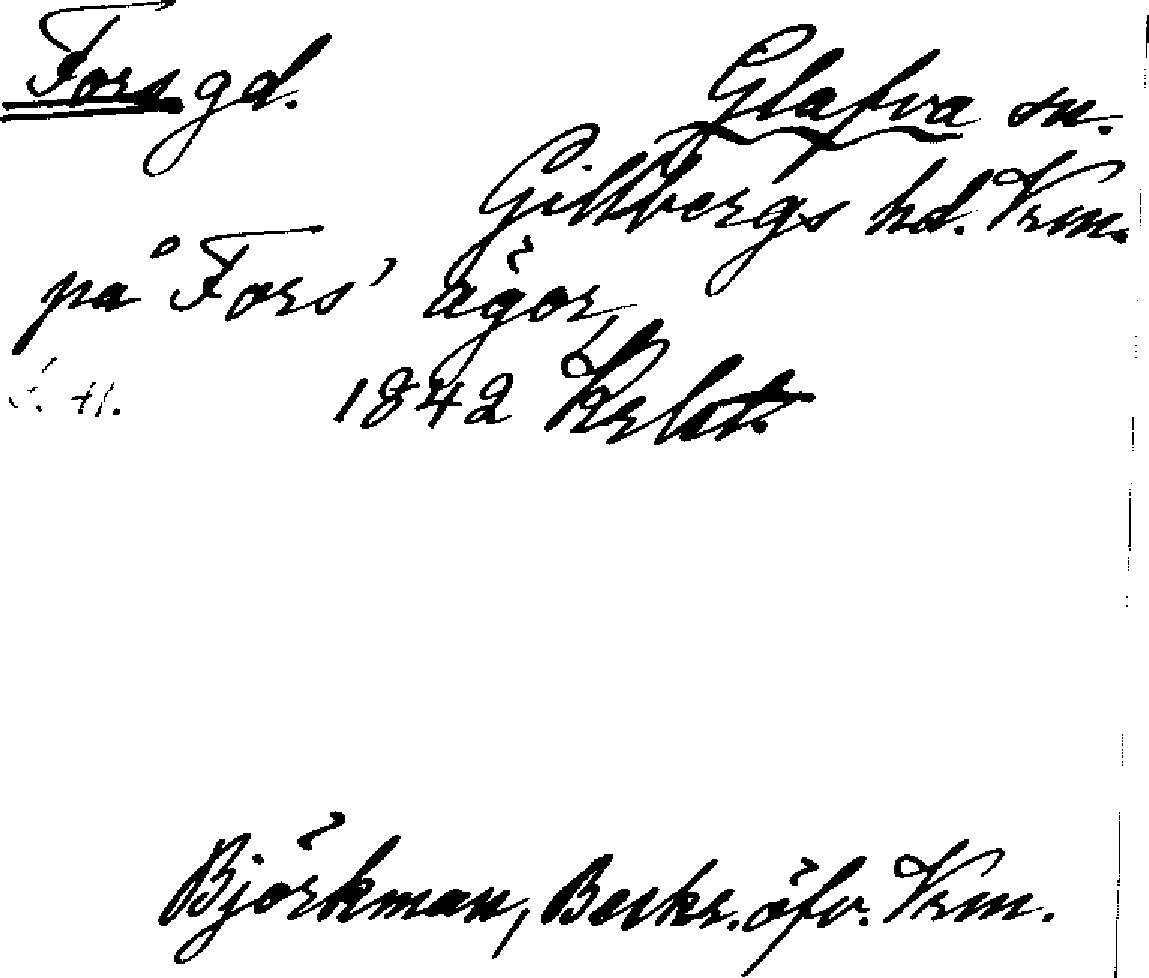 Fors gd. Glafva sn.
Gillbergs hd. Vrm.
på Fors' ägor
1842
Björkman, Beskr. öfv. Vrm.